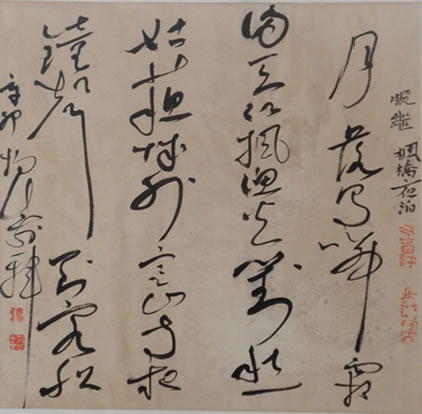 張继 楓橋夜泊
月落烏啼霜
滿天江楓漁火對愁
姑蘇城外寒山寺夜
鐘聲到客船
辛卯